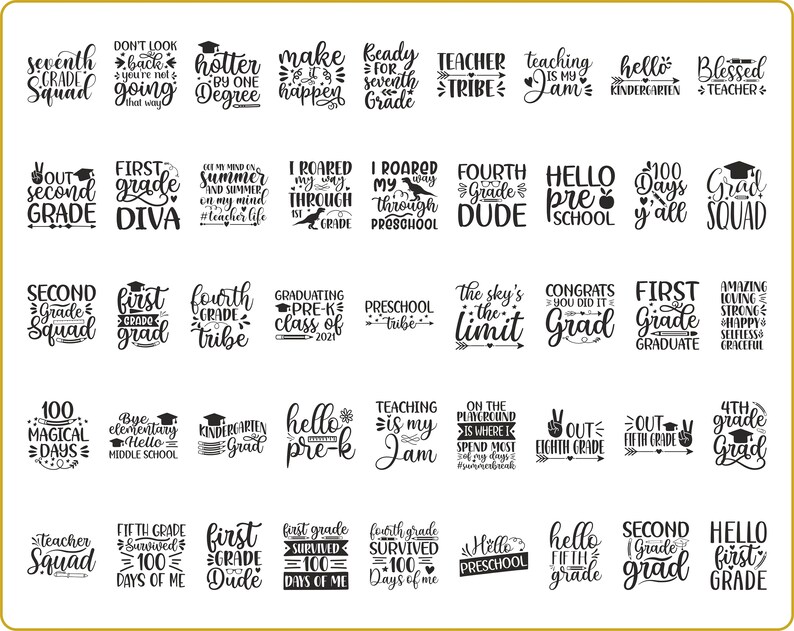 seventh
GRADE
Squad
DON'T LOOK
back
you're not
going
that way
hotter
BY ONE
Degree
make
it
happen
Ready
FOR
seventh
Grade
TEACHER
TRIBE
teaching
IS MY
Jam
hello
KINDERGARTEN
Blessed
TEACHER
OUT
second
GRADE
FIRST
grade
DIVA
GOT MY MIND ON
summer
AND SUMMER
on my mind
#teacher life
I ROARED
my way
THROUGH
1ST
GRADE
I ROARED
MY way
through
PRESCHOOL
FOURTH
Grade
DUDE
HELLO
pre
SCHOOL
100
Days
y'all
Grad
SQUAD
SECOND
Grade
Squad
first
GRADE
grad
fourth
GRADE
tribe
GRADUATING
PRE-K
class of
2021
PRESCHOOL
tribe
the sky's
the
limit
CONGRATS
YOU DID IT
Grad
FIRST
Grade
GRADUATE
AMAZING
LOVING
STRONG
HAPPY
SELFLESS
GRACEFUL
100
MAGICAL
DAYS
Bye
elementary
Hello
MIDDLE SCHOOL
KINDERGARTEN
Grad
hello
pre-k
TEACHING
is my
Jam
ON THE
PLAYGROUND
IS WHERE I
SPEND MOST
of my days
#summerbreak
OUT
EIGHTH GRADE
OUT
FIFTH GRADE
4TH
grade
Grad
teacher
Squad
FIFTH GRADE
Survived
100
DAYS OF ME
first
GRADE
Dude
first grade
SURVIVED
100
DAYS OF ME
fourth grade
SURVIVED
100
Days of me
Hello
PRESCHOOL
hello
FIFTH
grade
SECOND
Grade
grad
HELLO
first
GRADE